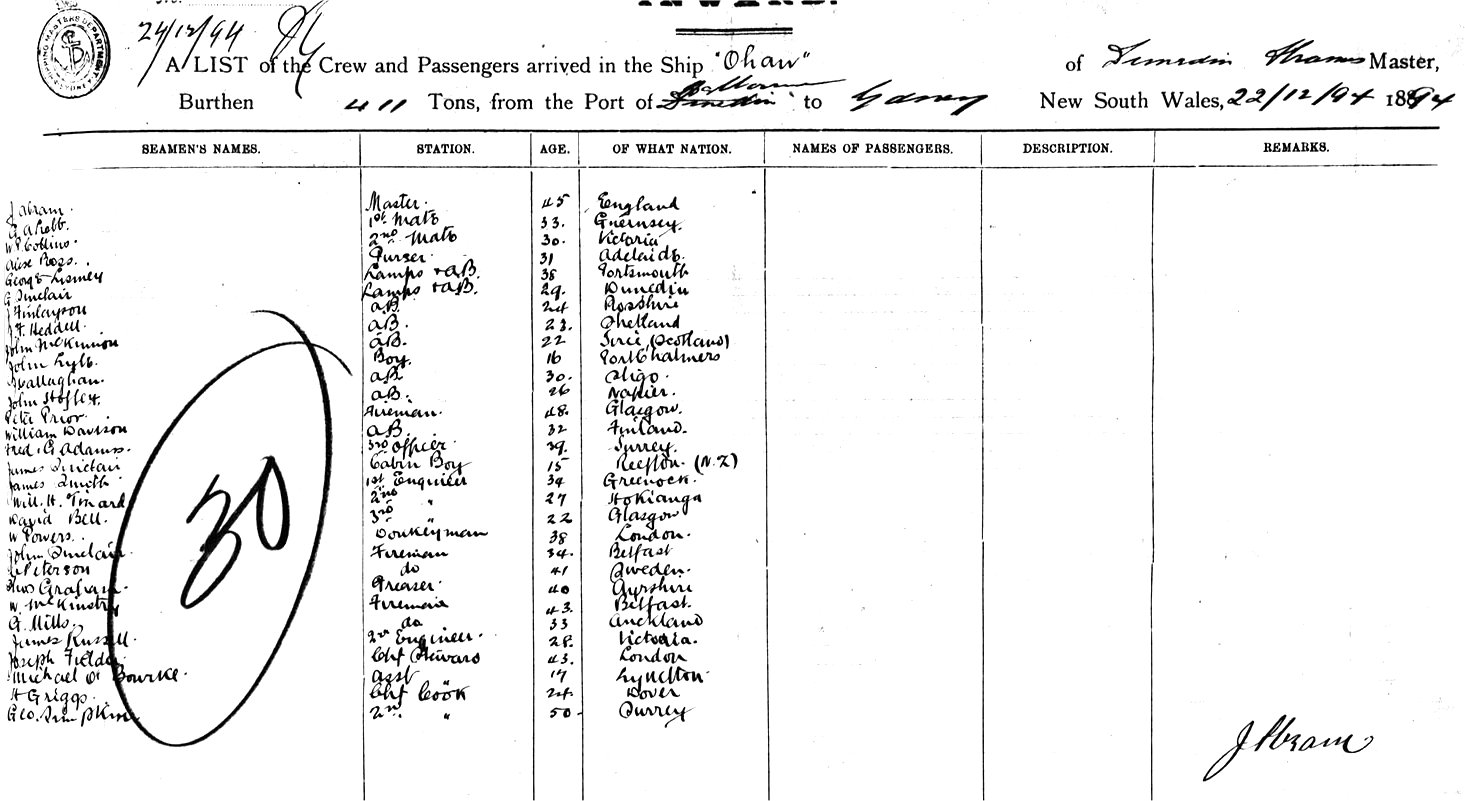 INWARD.
SHIPPING MASTERS DEPARTMENT SYDNEY
24/12/94
A LIST of the Crew and Passengers arrived in the Ship "Ohau" of Dunedin Abram Master,
Burthen 411 Tons, from the Port of Dunedin to New South Wales, 22/12/94 1894
SEAMEN'S NAMES. STATION. AGE. OF WHAT NATION. NAMES OF PASSENGERS. DESCRIPTION. REMARKS.
J Abram. Master. 45 England
1st Mate 33. Guernsey.
W. Collins. 2nd Mate 30. Victoria
Ross. Purser. 31 Adelaide.
George Lisney Lamps & AB. 38 Portsmouth
G Sinclair Lamps & AB. 29. Dunedin
J Finlayson AB. 24 Rosshire
J. F. Heddell. AB. 23. Shetland
John McKinnon AB. 22 (Scotland)
John Lyle. Boy. 16 Port Chalmers
Callaghan. AB. 30. Sligo.
John AB. 26 Napier.
Peter Prior. Fireman. 48. Glasgow.
William Davison AB. 32 Finland.
Fred. G. Adams. 3rd Officer 39. Surrey.
James Sinclair Cabin Boy 15 Reefton. (N.Z)
James Smith 1st Engineer 34 Greenock.
Will. H. 2nd " 27 Hokianga
David Bell. 3rd 22 Glasgow
W Powers. Donkeyman 38 London.
John Sinclair. Fireman 34. Belfast
Peterson do 41 Sweden.
Graham. Greaser. 40 Ayrshire
W. McKinstry Fireman 43. Belfast.
G. Mills. do 33 Auckland
James Russell. 2nd Engineer. 28. Victoria.
Joseph Fielder Chf Steward 43. London
Michael O'Bourke. Asst 17 Lyttelton.
H Griggs. Chf Cook 24. Dover
Geo. Simpkin 2nd. " 50 Surrey
30
J Abram